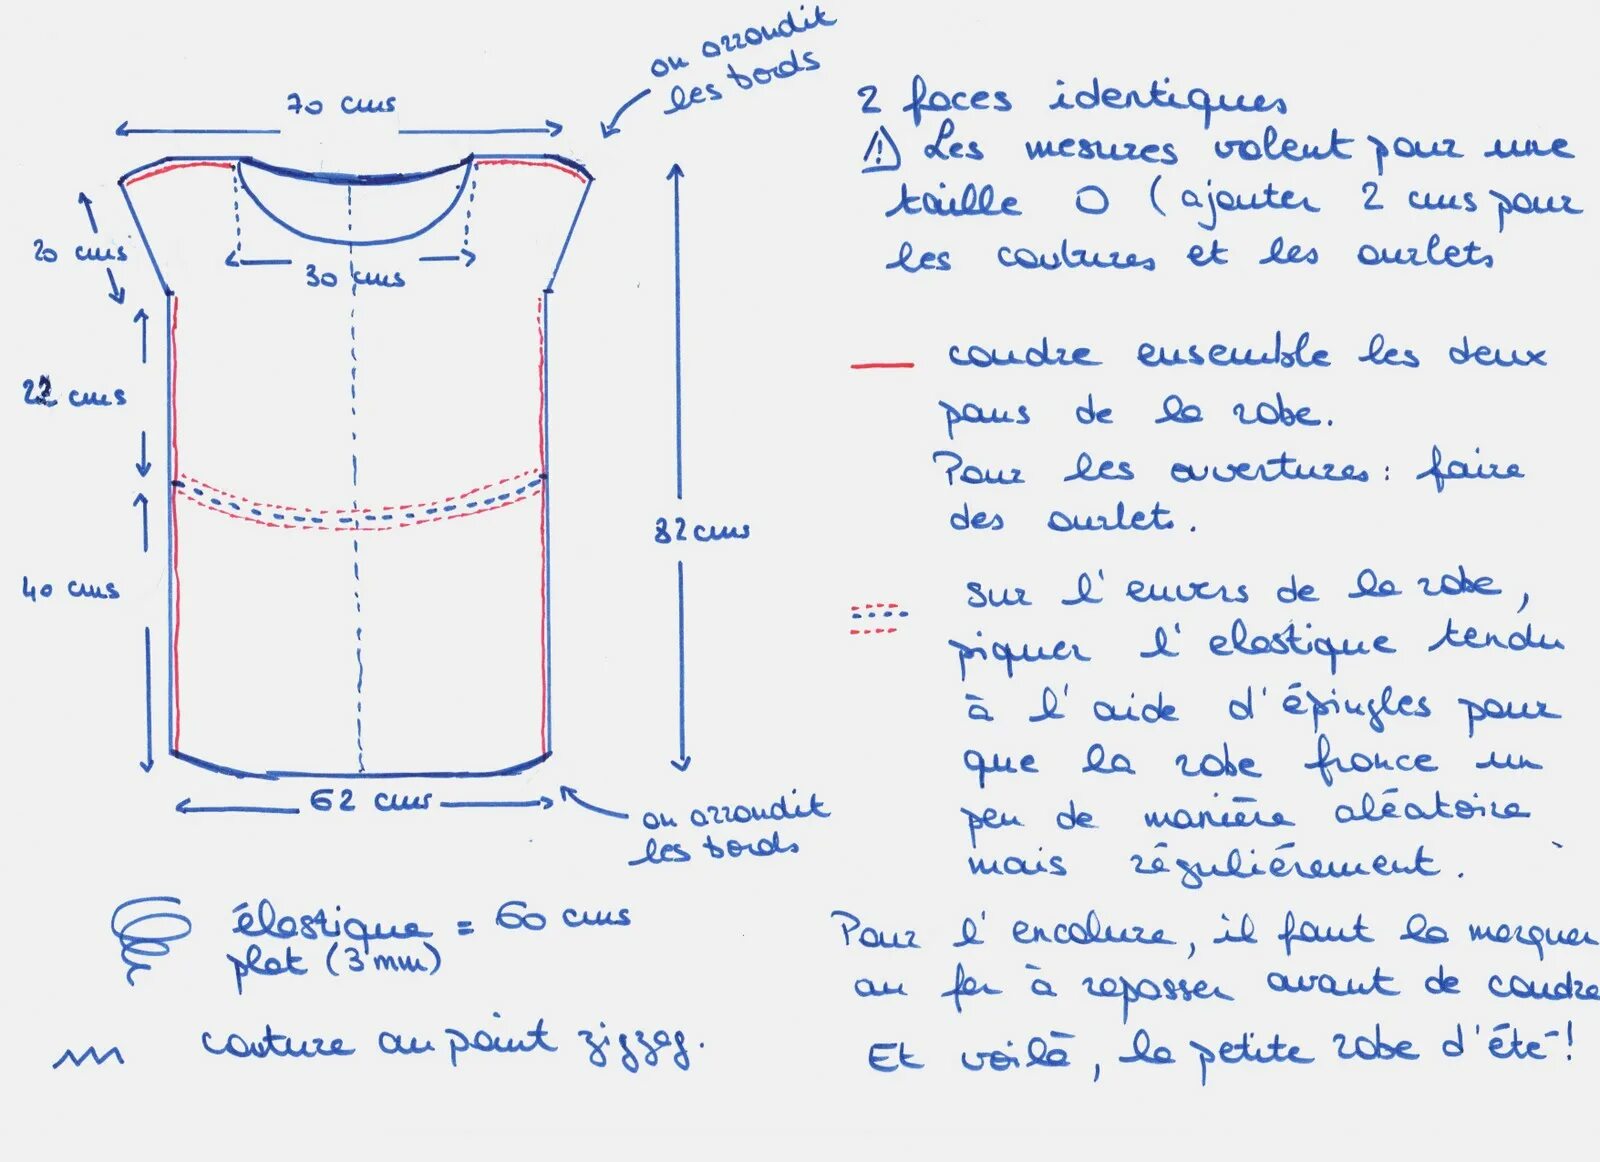 on arrondit
les bords
70 cms
20 cms
30 cms
22 cms
82 cms
40 cms
62 cms
on arrondit
les bords
élastique = 60 cms
plat (3 mm)
couture au point zigzag.
2 faces identiques
⚠ Les mesures valent pour une
taille 0 (ajouter 2 cms pour
les coutures et les ourlets
coudre ensemble les deux
pans de la robe.
Pour les ouvertures : faire
des ourlets.
sur l'envers de la robe,
piquer l'elastique tendu
à l'aide d'épingles pour
que la robe fronce un
peu de manière aléatoire
mais réguliérement.
Pour l'encolure, il faut la marquer
au fer à repasser avant de coudre
Et voilà, la petite robe d'été !